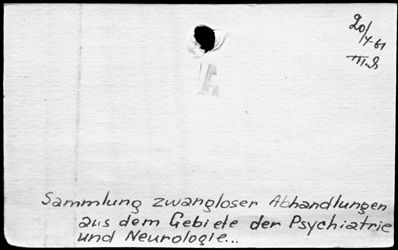 20/V-61
III-2
Sammlung zwangloser Abhandlungen
aus dem Gebiete der Psychiatrie
und Neurologie...